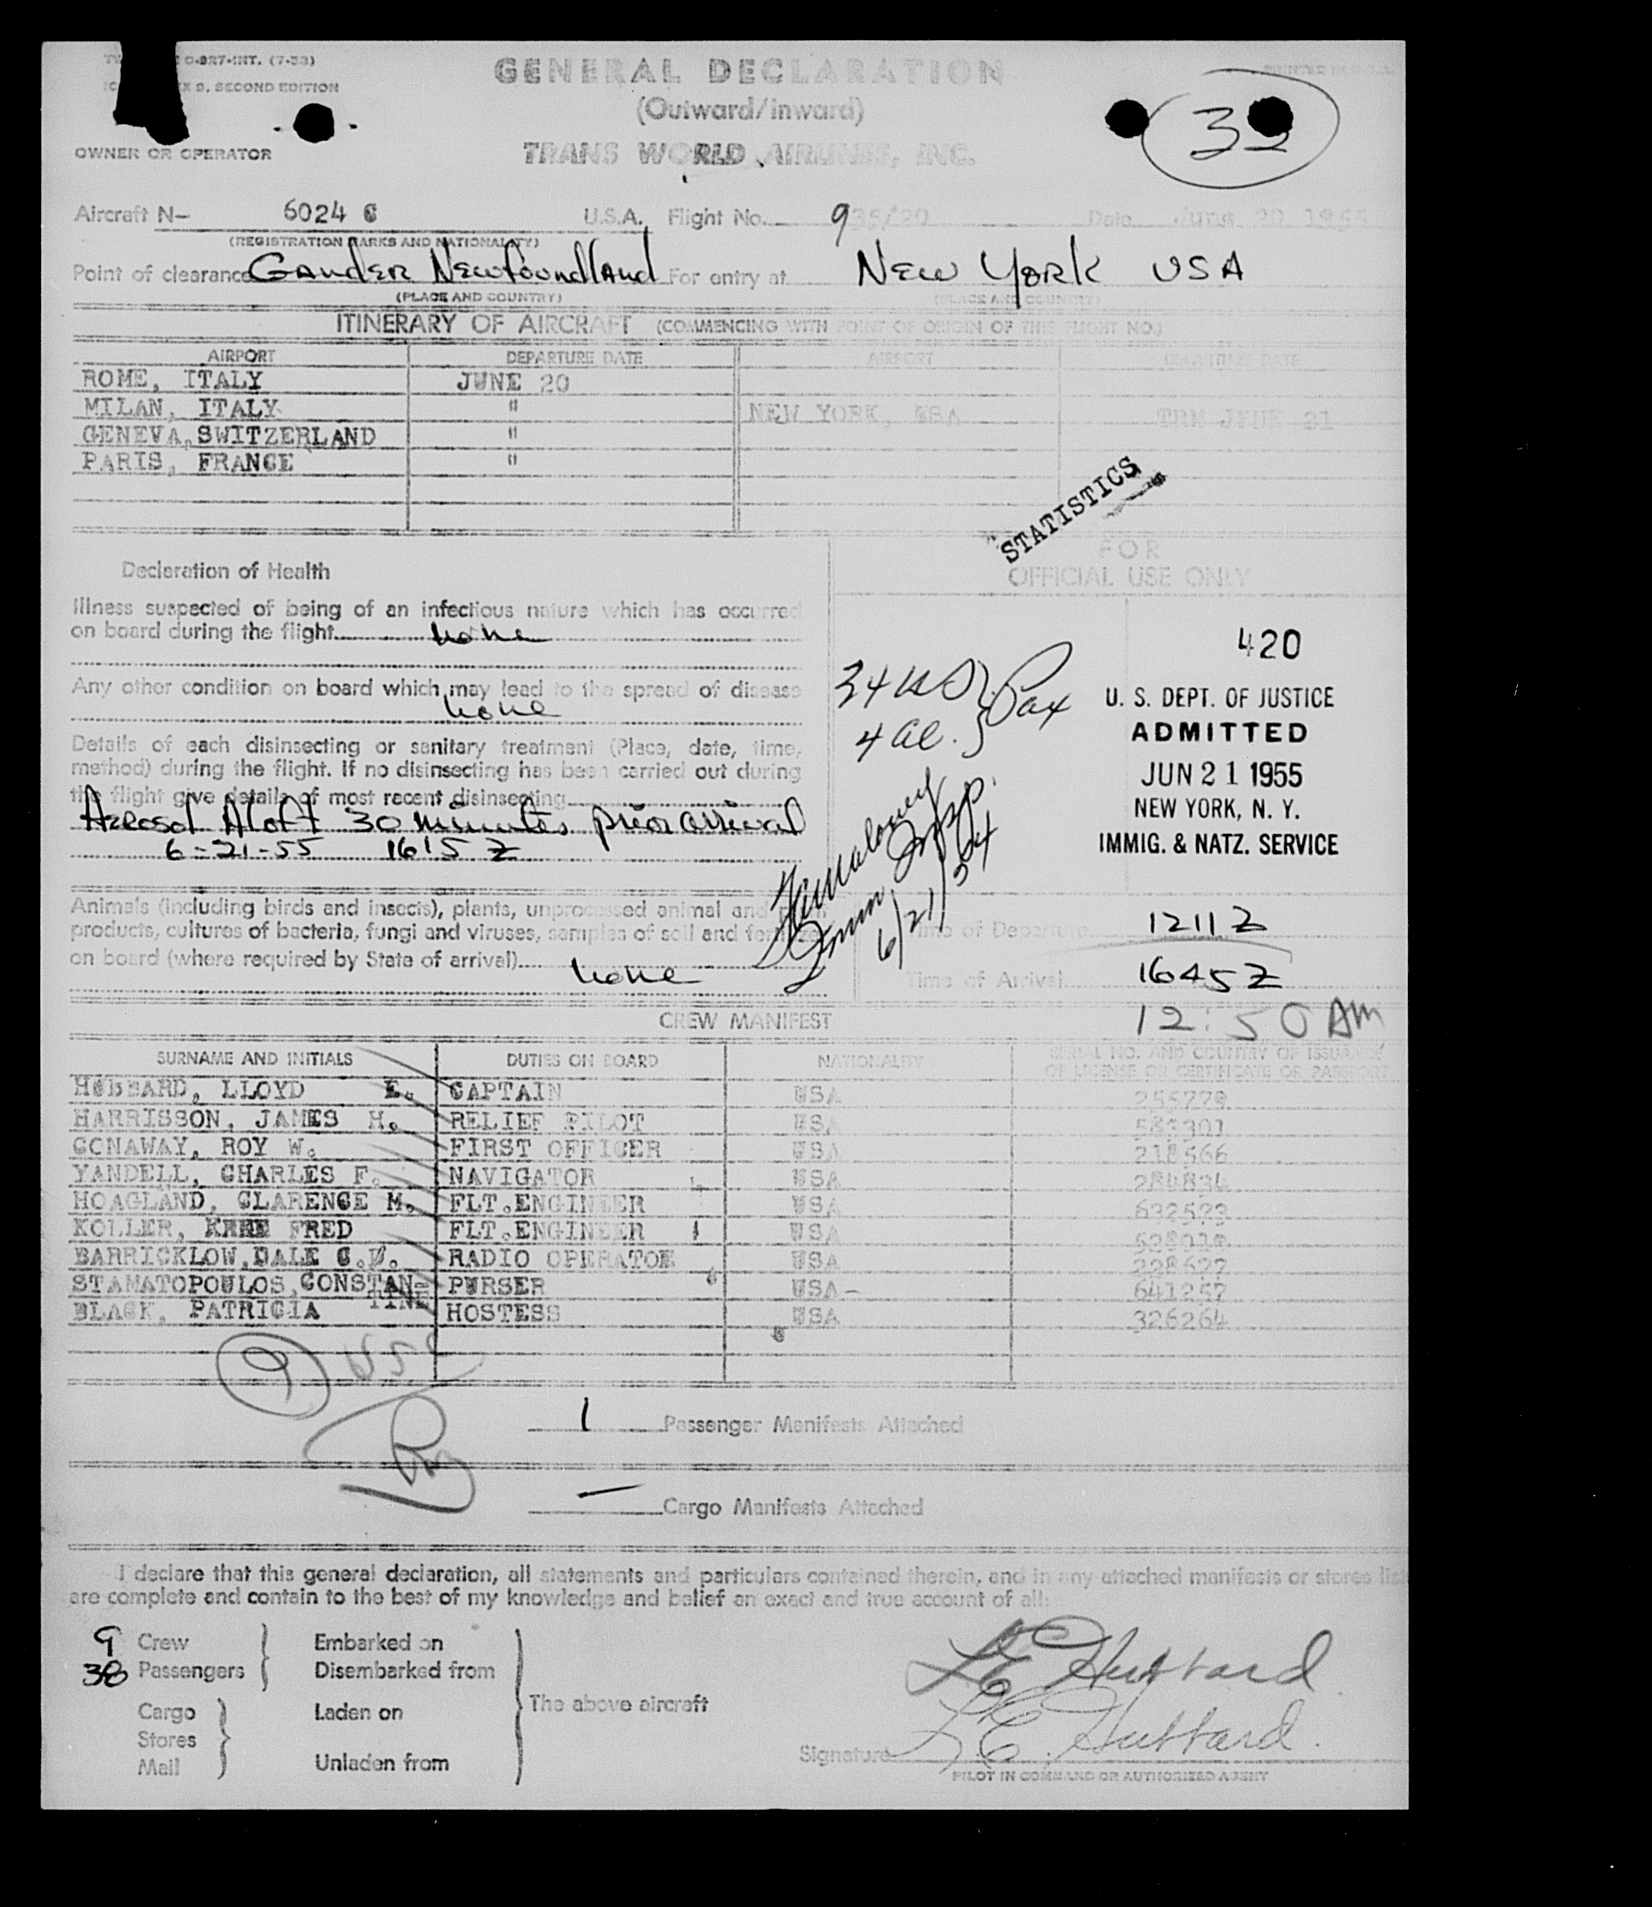 GENERAL DECLARATION
(Outward/Inward)
SECOND EDITION
32
OWNER OR OPERATOR
TRANS WORLD AIRLINES, INC.
Aircraft N- 6024 C U.S.A. Flight No. 935/20 Date June 20 1955
(REGISTRATION MARKS AND NATIONALITY)
Point of clearance Gander Newfoundland For entry at New York USA
(PLACE AND COUNTRY) (PLACE AND COUNTRY)
ITINERARY OF AIRCRAFT (COMMENCING WITH POINT OF ORIGIN OF THIS FLIGHT NO.)
AIRPORT DEPARTURE DATE AIRPORT DEPARTURE DATE
ROME, ITALY JUNE 20
MILAN, ITALY " NEW YORK, USA TRM JUNE 21
GENEVA, SWITZERLAND "
PARIS, FRANCE "
STATISTICS
FOR
OFFICIAL USE ONLY
Declaration of Health
Illness suspected of being of an infectious nature which has occurred
on board during the flight none
Any other condition on board which may lead to the spread of disease
none
Details of each disinsecting or sanitary treatment (Place, date, time,
method) during the flight. If no disinsecting has been carried out during
the flight give details of most recent disinsecting
Aerosol Aloft 30 minutes prior arrival
6-21-55 1615 Z
Animals (including birds and insects), plants, unprocessed animal and plant
products, cultures of bacteria, fungi and viruses, samples of soil and fertilizer
on board (where required by State of arrival) none
34 US } Pax
4 al.
Immn Insp.
6/21/54
420
U. S. DEPT. OF JUSTICE
ADMITTED
JUN 21 1955
NEW YORK, N. Y.
IMMIG. & NATZ. SERVICE
Time of Departure 1211 Z
Time of Arrival 1645 Z
12:50 AM
CREW MANIFEST
SURNAME AND INITIALS DUTIES ON BOARD NATIONALITY SERIAL NO. AND COUNTRY OF ISSUANCE
OF LICENSE OR CERTIFICATE OR PASSPORT
HUBBARD, LLOYD E. CAPTAIN USA
HARRISSON, JAMES H. RELIEF PILOT USA 583301
CONAWAY, ROY W. FIRST OFFICER USA 218566
YANDELL, CHARLES F. NAVIGATOR USA 284834
HOAGLAND, CLARENCE M. FLT.ENGINEER USA 632523
KOLLER, FRED FLT.ENGINEER USA
BARRICKLOW, DALE C.U. RADIO OPERATOR USA 228627
STAMATOPOULOS, CONSTAN- PURSER USA - 641257
TINE
BLACK, PATRICIA HOSTESS USA 326264
9
1 Passenger Manifests Attached
— Cargo Manifests Attached
I declare that this general declaration, all statements and particulars contained therein, and in any attached manifests or stores list
are complete and contain to the best of my knowledge and belief an exact and true account of all:
9 Crew Embarked on
38 Passengers Disembarked from
Cargo Laden on The above aircraft
Stores
Mail Unladen from
L E Hubbard
Signature L. E. Hubbard.
PILOT IN COMMAND OR AUTHORIZED AGENT